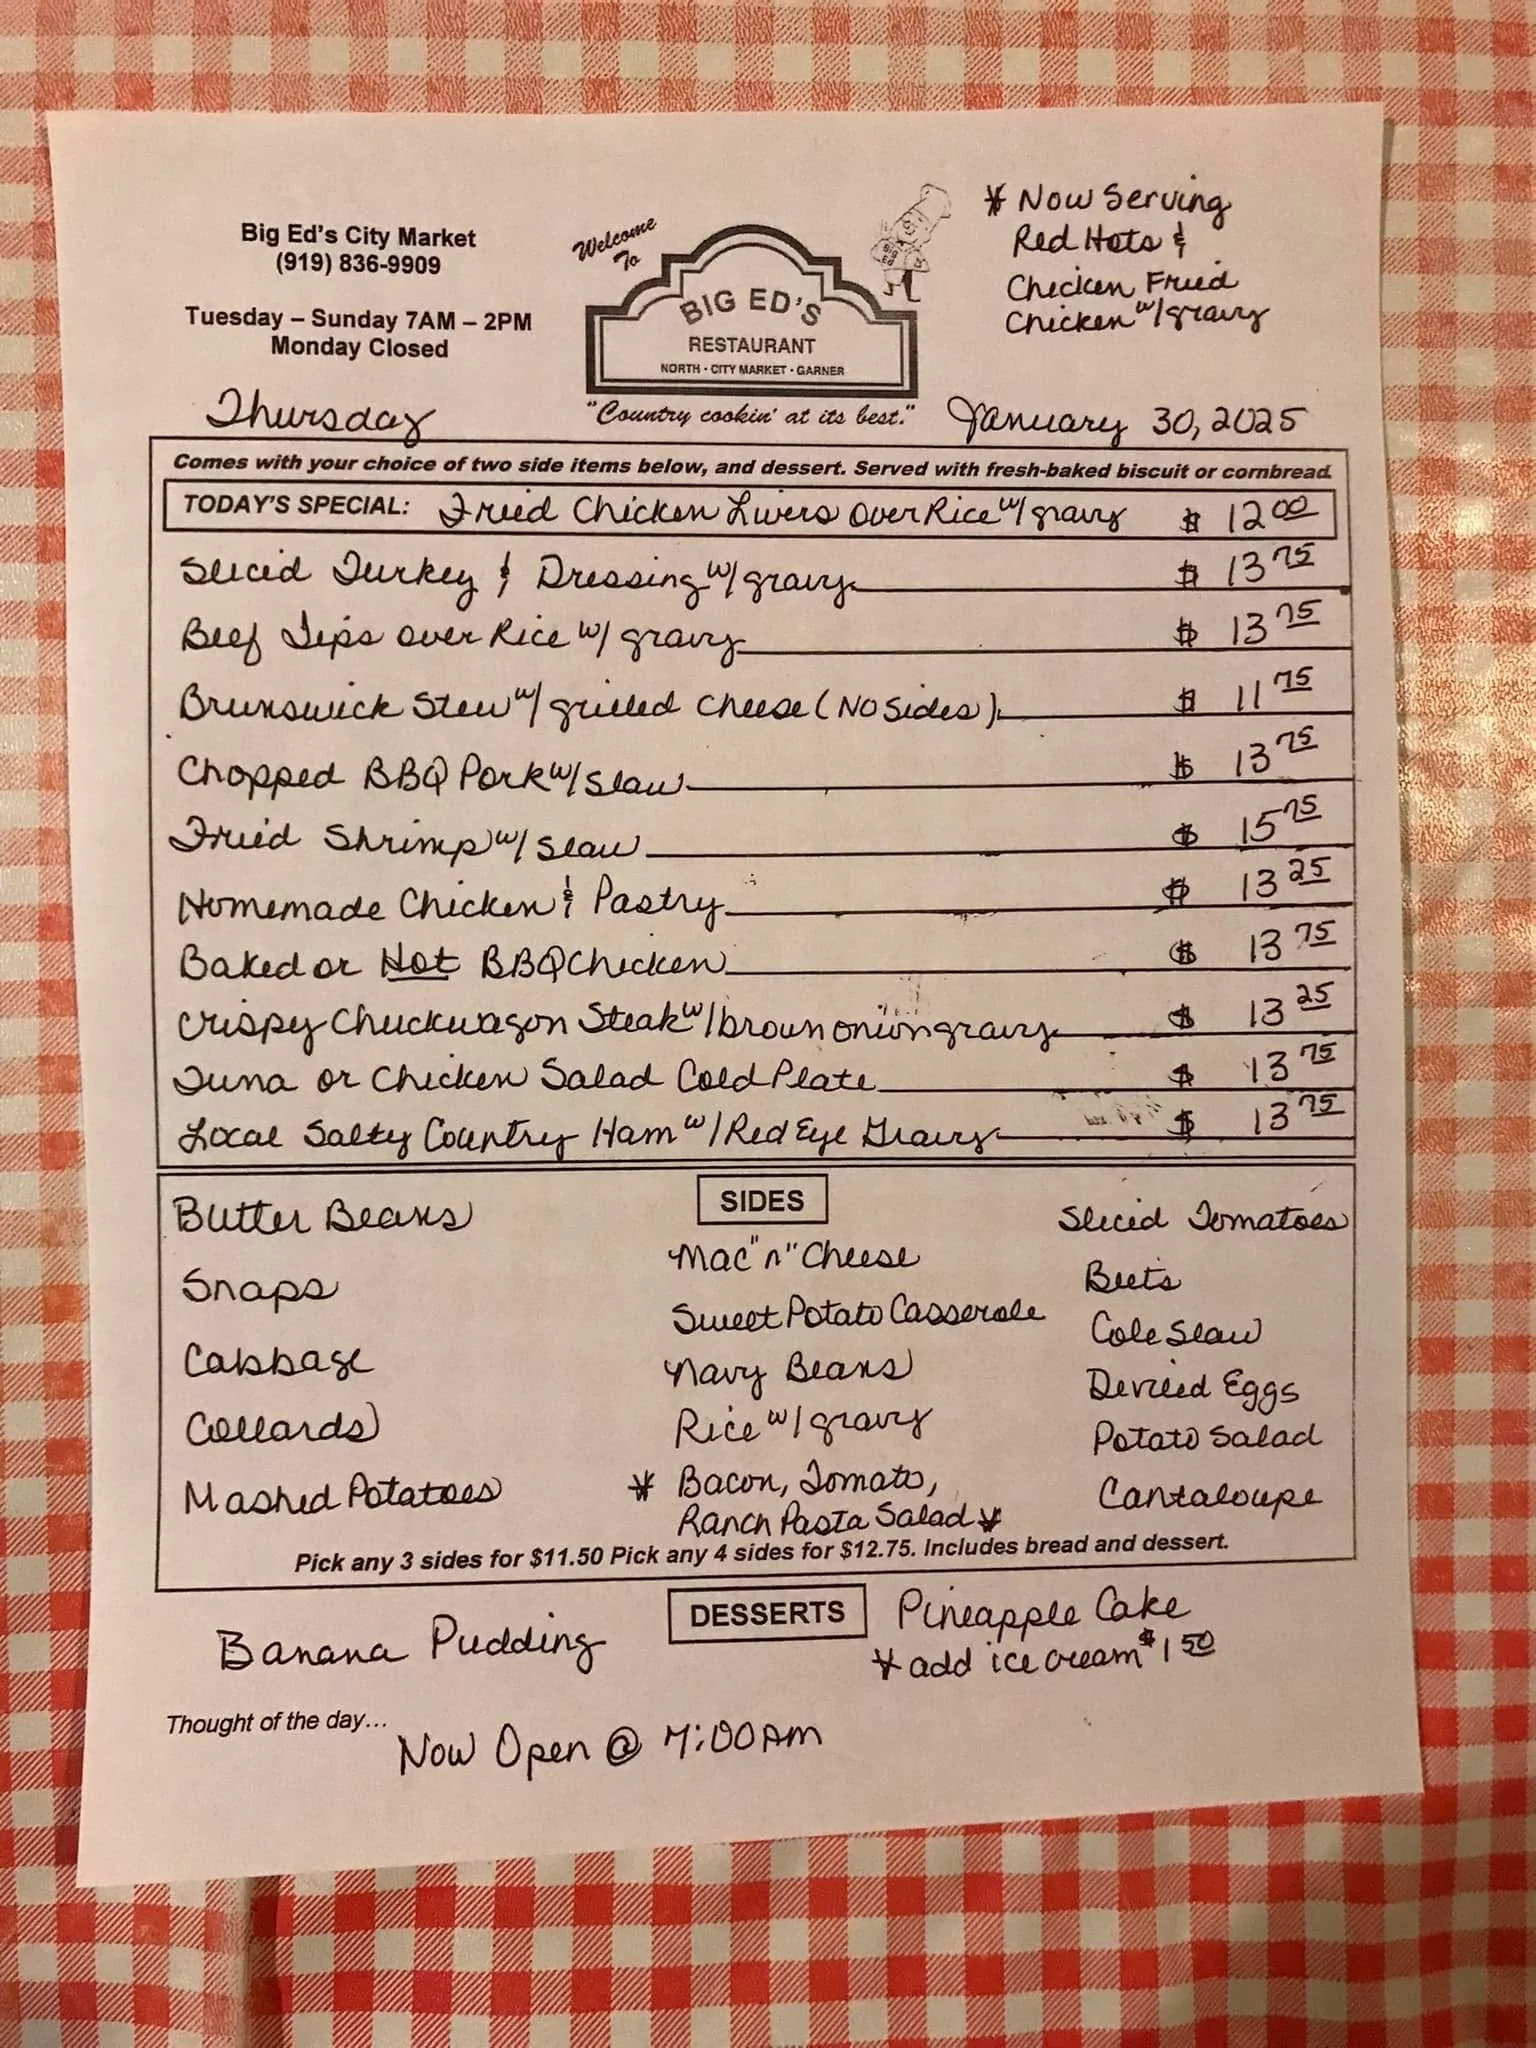 Big Ed's City Market
(919) 836-9909
Tuesday – Sunday 7AM – 2PM
Monday Closed
Welcome
To
BIG ED'S
RESTAURANT
NORTH · CITY MARKET · GARNER
"Country cookin' at its best."
BIG
ED
* Now Serving
Red Hots &
Chicken Fried
Chicken w/gravy
Thursday
January 30, 2025
Comes with your choice of two side items below, and dessert. Served with fresh-baked biscuit or cornbread.
TODAY'S SPECIAL: Fried Chicken Livers over Rice w/gravy $ 12 00
Sliced Turkey & Dressing w/gravy $ 13 75
Beef Tips over Rice w/gravy $ 13 75
Brunswick Stew w/grilled cheese (No Sides) $ 11 75
Chopped BBQ Pork w/slaw $ 13 75
Fried Shrimp w/slaw $ 15 75
Homemade Chicken & Pastry $ 13 25
Baked or Hot BBQ Chicken $ 13 75
Crispy Chuckwagon Steak w/brown onion gravy $ 13 25
Tuna or Chicken Salad Cold Plate $ 13 75
Local Salty Country Ham w/Red Eye Gravy $ 13 75
SIDES
Butter Beans
Snaps
Cabbage
Collards
Mashed Potatoes
Mac "n" Cheese
Sweet Potato Casserole
Navy Beans
Rice w/gravy
* Bacon, Tomato,
Ranch Pasta Salad *
Sliced Tomatoes
Beets
Cole Slaw
Deviled Eggs
Potato Salad
Cantaloupe
Pick any 3 sides for $11.50 Pick any 4 sides for $12.75. Includes bread and dessert.
DESSERTS
Banana Pudding
Pineapple Cake
* add ice cream $1 50
Thought of the day...
Now Open @ 7:00 AM